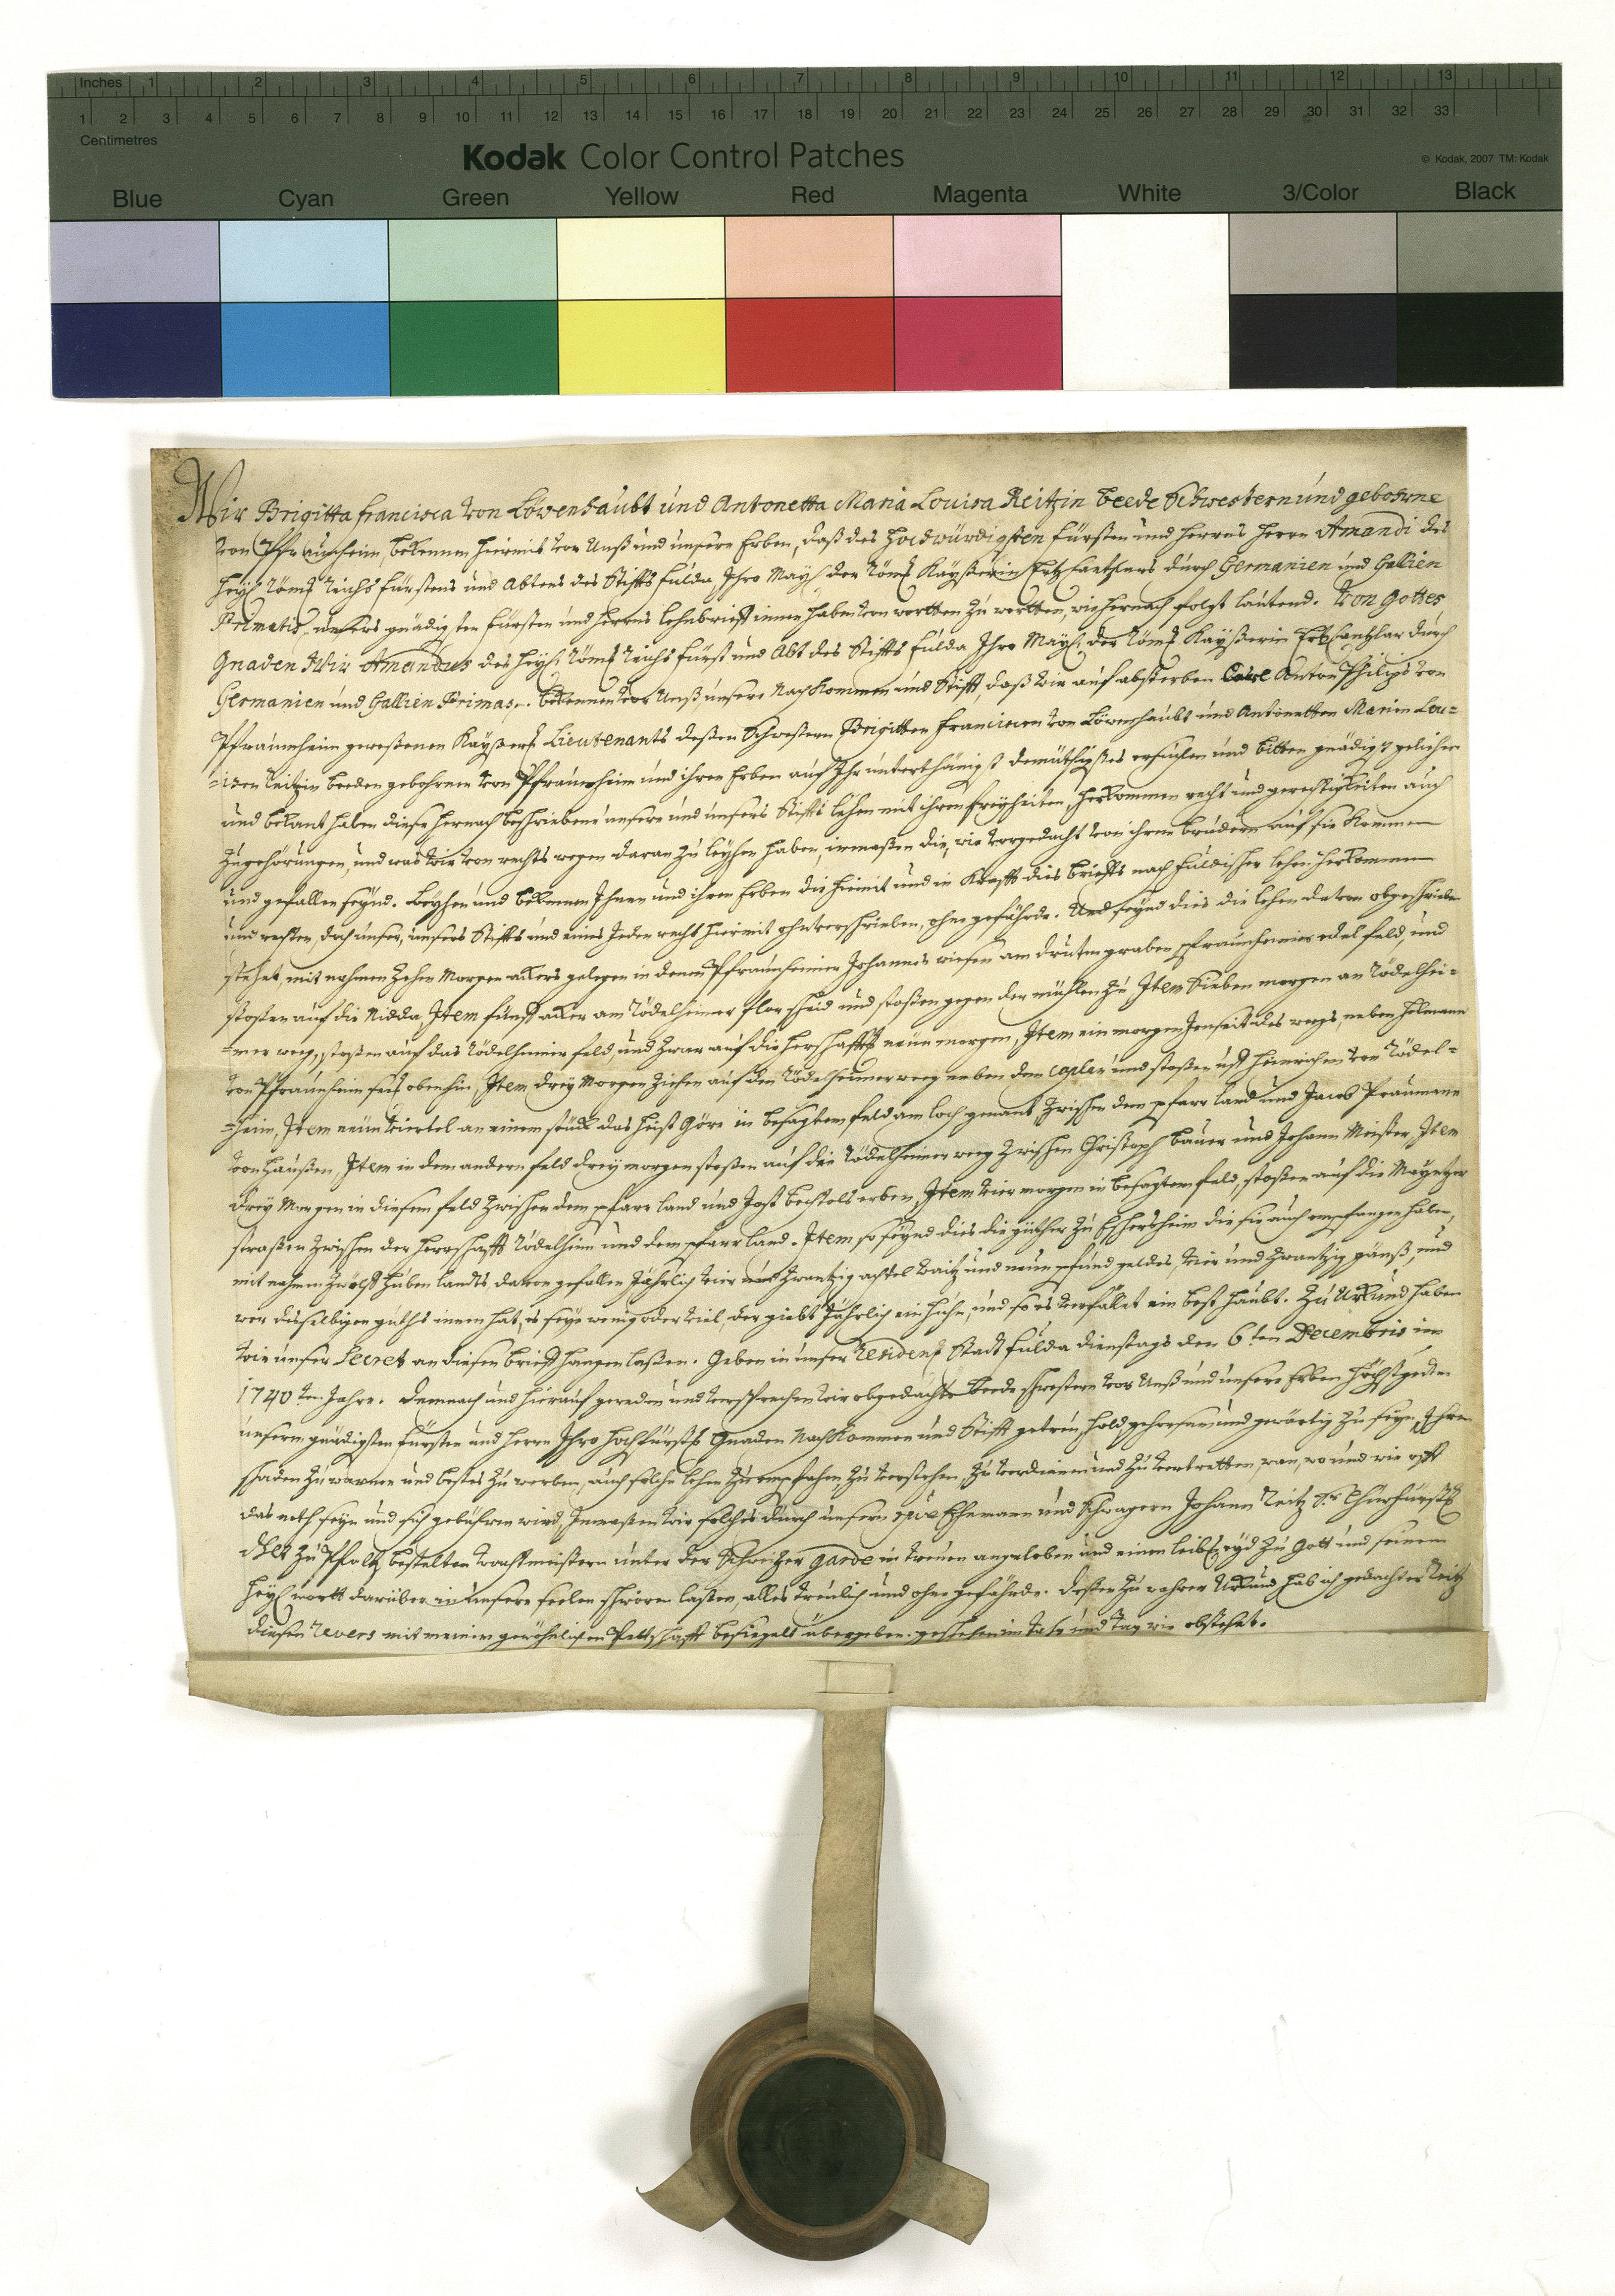 Inches 1 2 3 4 5 6 7 8 9 10 11 12 13
1 2 3 4 5 6 7 8 9 10 11 12 13 14 15 16 17 18 19 20 21 22 23 24 25 26 27 28 29 30 31 32 33
Centimetres
Kodak Color Control Patches
© Kodak, 2007 TM: Kodak
Blue Cyan Green Yellow Red Magenta White 3/Color Black
Wir Brigitta Francisca von Löwenhaubt und Antonetta Maria Louisa Reitzin beede Schwestern und gebohrne
von Pfraumheim, bekennen hiermit vor Unß und unsere Erben, daß des Hochwürdigsten Fürsten und Herrns Herrn Amandi des
Heyl. Röms. Reichs Fürstens und Abtens des Stiffts Fulda, Ihro May. der Röms. Kayßerin Ertzcantzlers durch Germanien und Gallien
Primatis, unsers gnädigsten Fürsten und Herrns Lehnbrieff innen haben von wortten zu wortten, wie hernach folgt lautend. Von Gottes
Gnaden Wir Amandus des Heyl. Röms. Reichs Fürst und Abt des Stiffts Fulda Ihro May. der Röms. Kayßerin Ertzcantzlar durch
Germanien und Gallien Primas. bekennen vor Unß unsere Nachkommen und Stifft, daß wir auf absterben Carl Anton Philips von
Pfraumheim geweßenen Kayßerl. Lieutenants deßen Schwestern Brigitten Franciscen von Löwenhaubt und Antonetten Marien Lou=
=isen Reitzin beeden gebohrnen von Pfraumheim und ihren Erben auf Ihr unterthänigst demüthigstes ersuchen und bitten gnädigst geliehen
und bekant haben diese hernach beschriebene unsere und unsers Stiffts lehen mit ihren freyheiten, herkommen recht und gerechtigkeiten auch
Zugehörungen, und was wir von rechts wegen daran zu leyhen haben, inmaßen die, wie vorgedacht von ihrem brudern auf sie kommen
und gefallen seynd. Leyhen und bekennen Ihnen und ihren Erben die hiermit und in Krafft dies brieffs nach Fuldischer lehen herkommen
und rechten, doch unser, unsers Stiffts und eines Jeden recht hiermit ohnverschrieben, ohne gefährde. Und seynd dies die lehen davon obgeschrieben
stehet, mit nahmen Zehen Morgen ackers gelegen in denen Pfraumheimer Johannes wiesen am druten graben, pfraumheimer edel feld, und
stoßen auf die Nidda, Item fünff acker am Rödelheimer flor scheid und stoßen gegen der mühlen zu Item Sieben morgen an Rödelhei=
=mer weeg, stoßen auf das Rödelheimer feld, und zwar auf die herschafft neun morgen, Item ein morgen Jenseit des weegs, neben
von Pfraumheim seit obenhin, Item drey Morgen Ziehen auf den Rödelheimer weeg neben dem caplan und stoßen uff Heinrichen von Rödel=
=heim, Item neun viertel an einem stück das heist Göre in besagtem feld am loch genant, zwischen dem pfarr land und Jacob Praumann
von Haußen, Item in dem andern feld drey morgen stoßen auf die Rödelheimer weeg zwischen Christoph Bauer und Johann Meister, Item
drey Morgen in diesem feld zwischen dem pfarr land und Jost bechtols erben, Item vier morgen in besagtem feld, stoßen auf die Mayntzer
straßen zwischen der herrschafft Rödelheim und dem pfarr land. Item so seynd dies die güther zu Eschersheim die sie auch empfangen haben,
mit nahmen Zwölff huben landts davon gefallen Jährlich vier und zwantzig achtel waitz und neun pfund geldes, vier und zwantzig gänß, und
wer desselbigen guths innen hat, es seye wenig oder viel, der giebt Jährlich ein huhn, und so es verfället ein best haubt. Zu Urkund haben
wir unser Secret an diesen brieff hangen laßen. Geben in unser Residentz Stadt Fulda dienstags den 6ten Decembris im
1740ten Jahre. Demnach und hierauf gereden und versprechen wir obgedachte beede schwestern vor Unß und unsere Erben höchstged.
unserm gnädigsten Fürsten und Herrn Ihro Hochfürstl. Gnaden Nachkommen und Stifft getreu, hold gehorsam und gewärtig zu seyn, Ihren
schaden zu warnen und bestes zu werben, auch solche lehen zu empfahen, zu verstehen, zu verdienen und zu vertretten, wan, wo und wie offt
das noth seyn und sich gebühren wird, Inmaßen wir solches durch unsern Ehemann und Schwagern Johann Reitz Sr. Churfürstl.
dhlt zu Pfaltz bestelten wachtmeistern unter der Schweizer garde in treuen angeloben und einen leibl. eyd zu Gott und seinem
heyl. wortt darüber in unsere seelen schwören laßen, alles treulich und ohne gefährde. deßen zu wahrer Urkund hab ich gedachter Reitz
diesen revers mit meinem gewöhnlichen Pettschafft besiegelt übergeben. geschehen im Jahr und Tag wie obstehet.